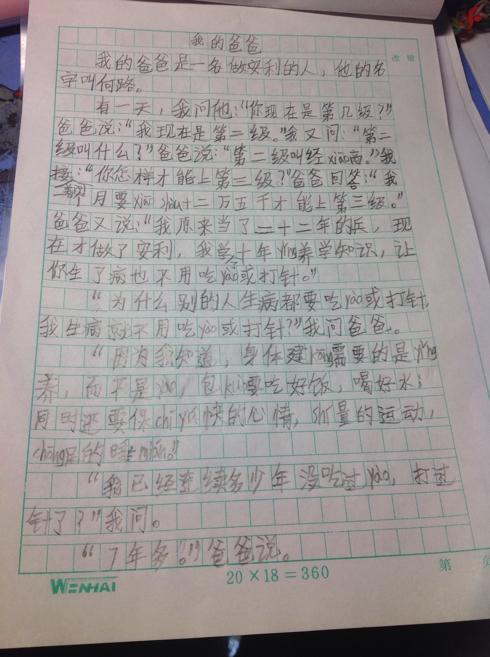 我的爸爸
我的爸爸是一名做安利的人，他的名
字叫何路。
有一天，我问他：“你现在是第几级？”
爸爸说：“我现在是第二级。”我又问：“第二
级叫什么？”爸爸说：“第二级叫经xiāo商。”我
接：“你怎样才能上第三级？”爸爸回答：“我
月要xiāo十二万五千才能上第三级。”
爸爸又说：“我原来当了二十二年的兵，现
在才做了安利，我学十年yíng养学知识，让
你生了病也不用吃yào或打针。”
“为什么别的人生病都要吃yào或打针，
我生病不用吃yào或打针？”我问爸爸。
“因为我知道，身体建kāng需要的是yíng
养，而不是yào，包kuò要吃好饭，喝好水；
同时还要保chí愉快的心情，所量的运动，
chōng足的睡mián。”
“我已经连续多少年没吃过yào，打过
针了？”我问。
“7年多。”爸爸说。
WENHAI
20×18=360
第 页